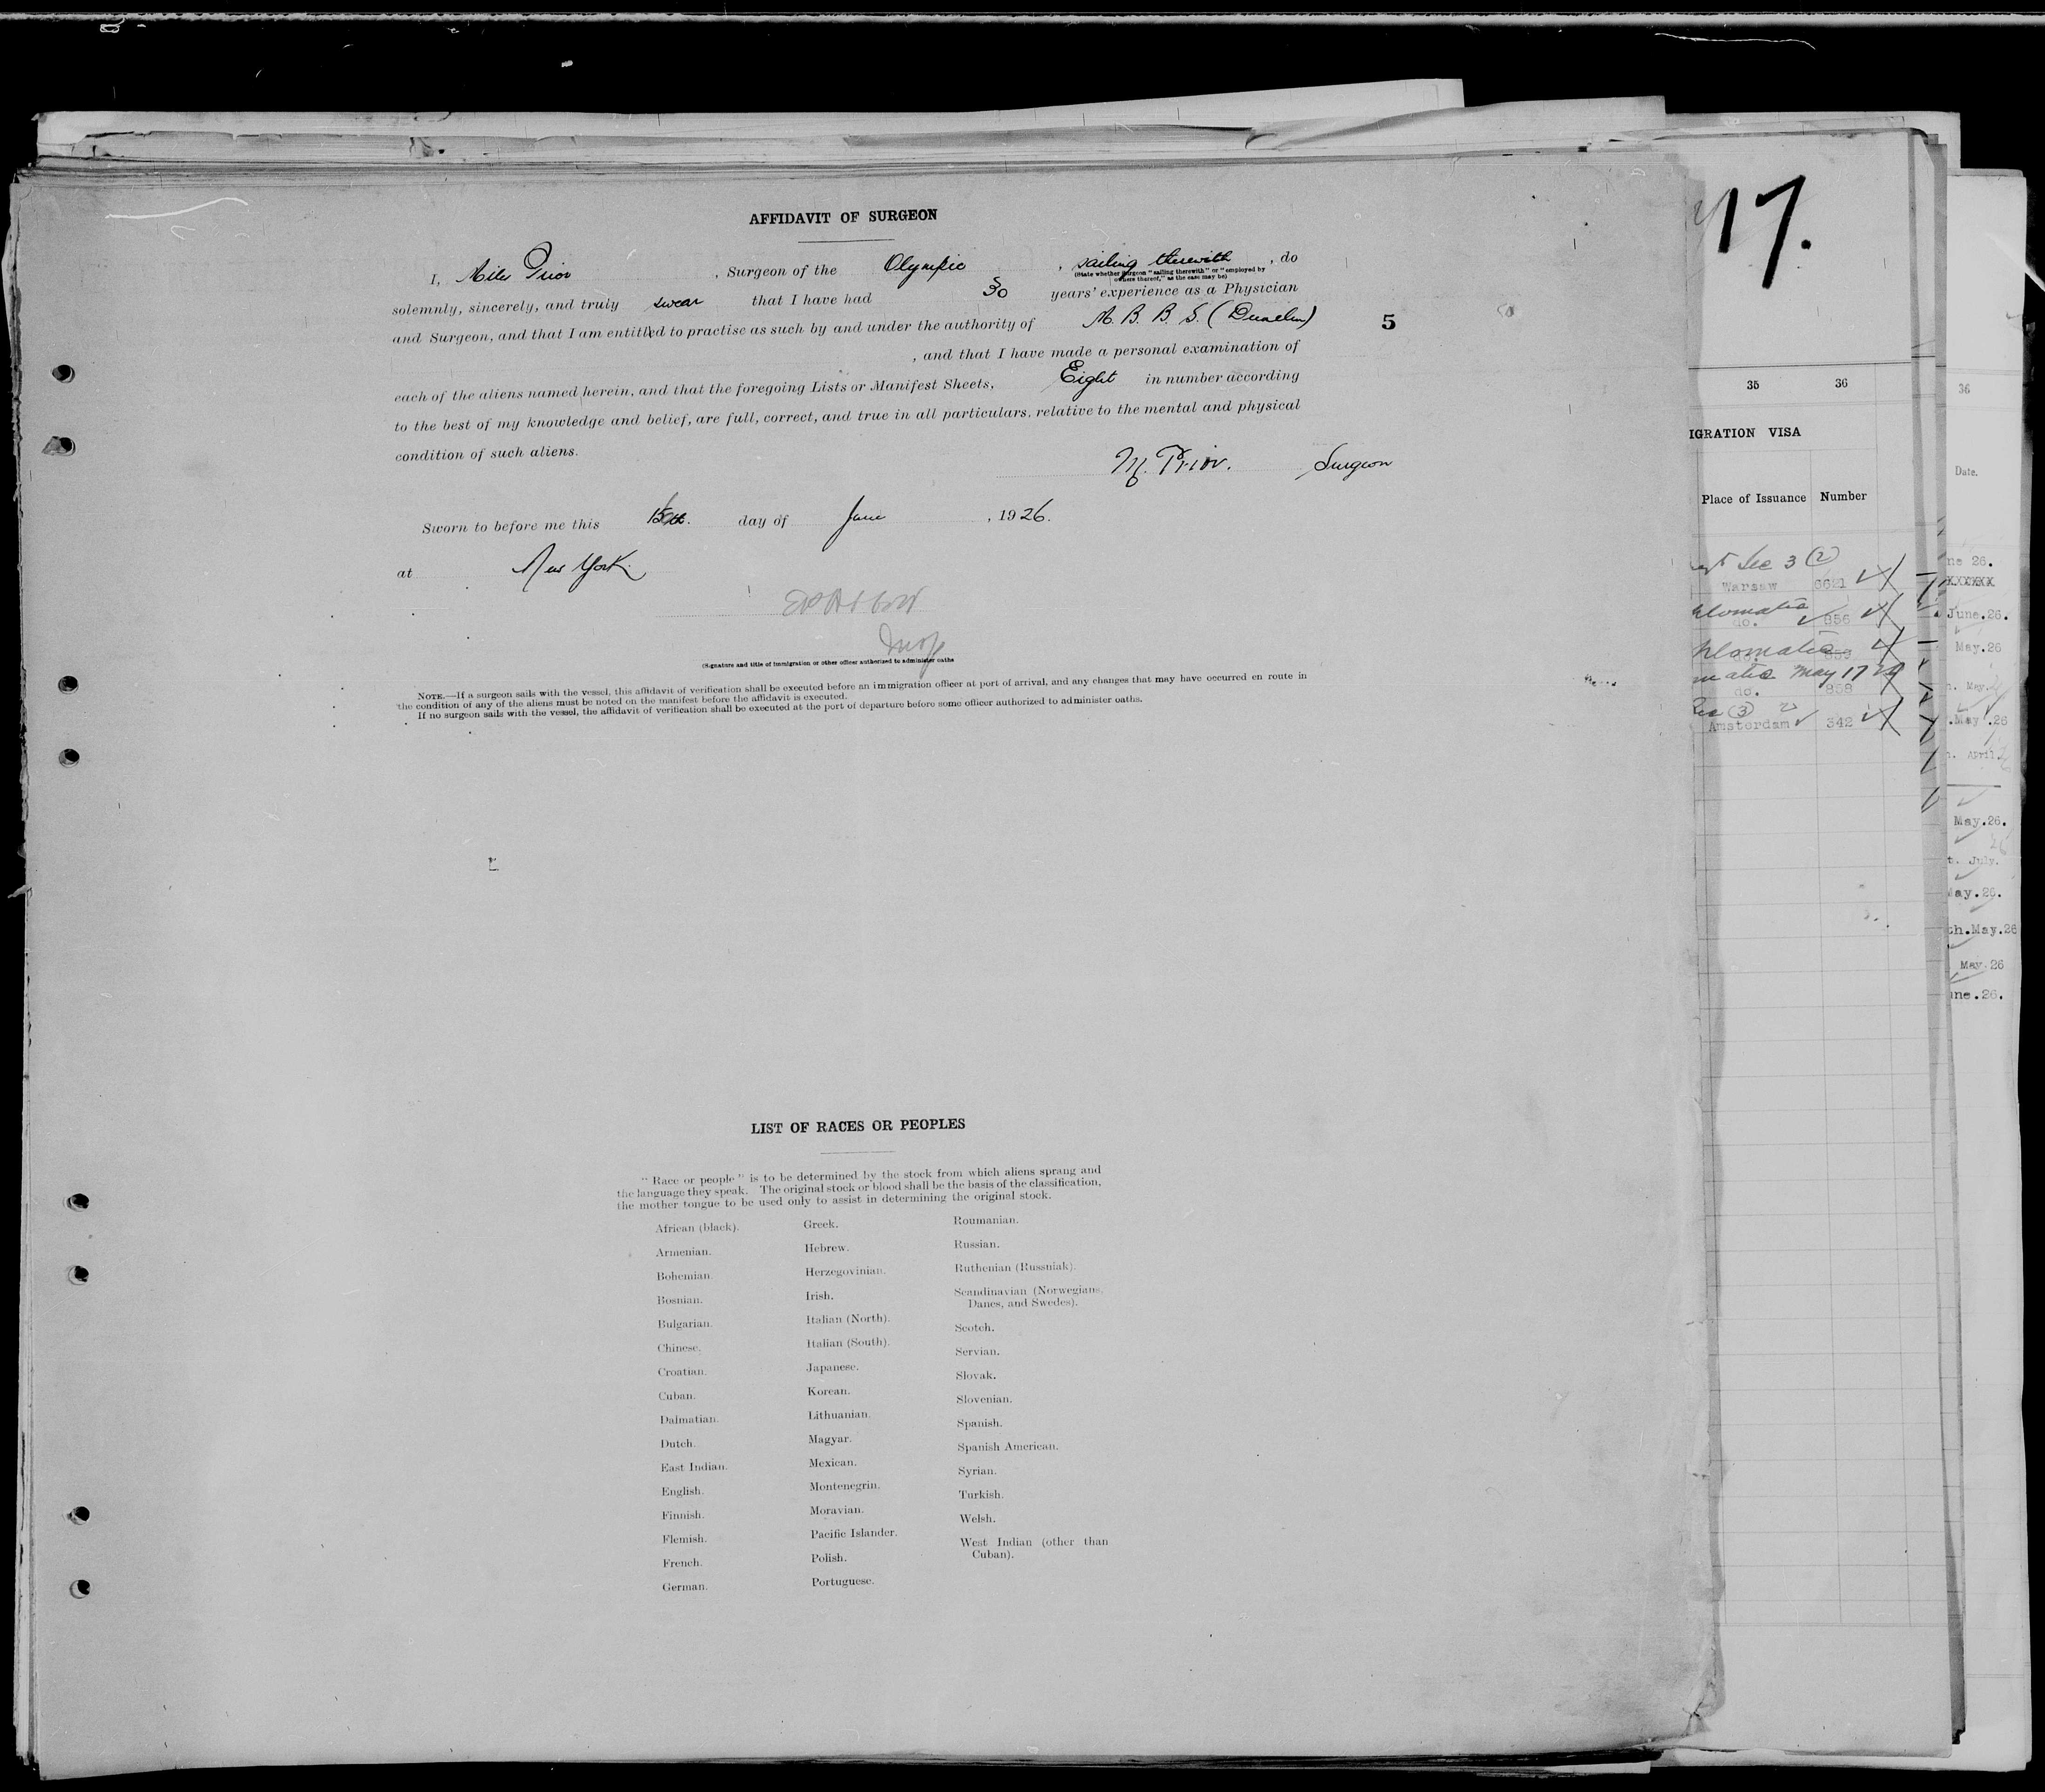 AFFIDAVIT OF SURGEON
I, Miles Prior, Surgeon of the Olympic, sailing therewith, do
(State whether Surgeon "sailing therewith" or "employed by
owners thereof," as the case may be)
solemnly, sincerely, and truly swear that I have had 30 years' experience as a Physician
and Surgeon, and that I am entitled to practise as such by and under the authority of M. B. B. S. (Dunelm)
5
, and that I have made a personal examination of
each of the aliens named herein, and that the foregoing Lists or Manifest Sheets, Eight in number according
to the best of my knowledge and belief, are full, correct, and true in all particulars, relative to the mental and physical
condition of such aliens.
M. Prior. Surgeon
Sworn to before me this 15th. day of June, 1926.
at New York
(Signature and title of immigration or other officer authorized to administer oaths
NOTE.—If a surgeon sails with the vessel, this affidavit of verification shall be executed before an immigration officer at port of arrival, and any changes that may have occurred en route in
the condition of any of the aliens must be noted on the manifest before the affidavit is executed.
If no surgeon sails with the vessel, the affidavit of verification shall be executed at the port of departure before some officer authorized to administer oaths.
LIST OF RACES OR PEOPLES
"Race or people" is to be determined by the stock from which aliens sprang and
the language they speak. The original stock or blood shall be the basis of the classification,
the mother tongue to be used only to assist in determining the original stock.
African (black).
Armenian.
Bohemian.
Bosnian.
Bulgarian.
Chinese.
Croatian.
Cuban.
Dalmatian.
Dutch.
East Indian.
English.
Finnish.
Flemish.
French.
German.
Greek.
Hebrew.
Herzegovinian.
Irish.
Italian (North).
Italian (South).
Japanese.
Korean.
Lithuanian.
Magyar.
Mexican.
Montenegrin.
Moravian.
Pacific Islander.
Polish.
Portuguese.
Roumanian.
Russian.
Ruthenian (Russniak).
Scandinavian (Norwegians,
Danes, and Swedes).
Scotch.
Servian.
Slovak.
Slovenian.
Spanish.
Spanish American.
Syrian.
Turkish.
Welsh.
West Indian (other than
Cuban).
17.
35 36
IGRATION VISA
Place of Issuance Number
Sec 3 (2)
Warsaw 6621
plomatic
do. 856
plomatic
matic May 17 26
do. 858
Sec (3) 2
Amsterdam 342
36
Date.
ne 26.
XXXXXX
June.26.
May.26
. May.
.May.26
. April.
May.26.
t. July.
May.26.
th.May.26
May.26
une.26.